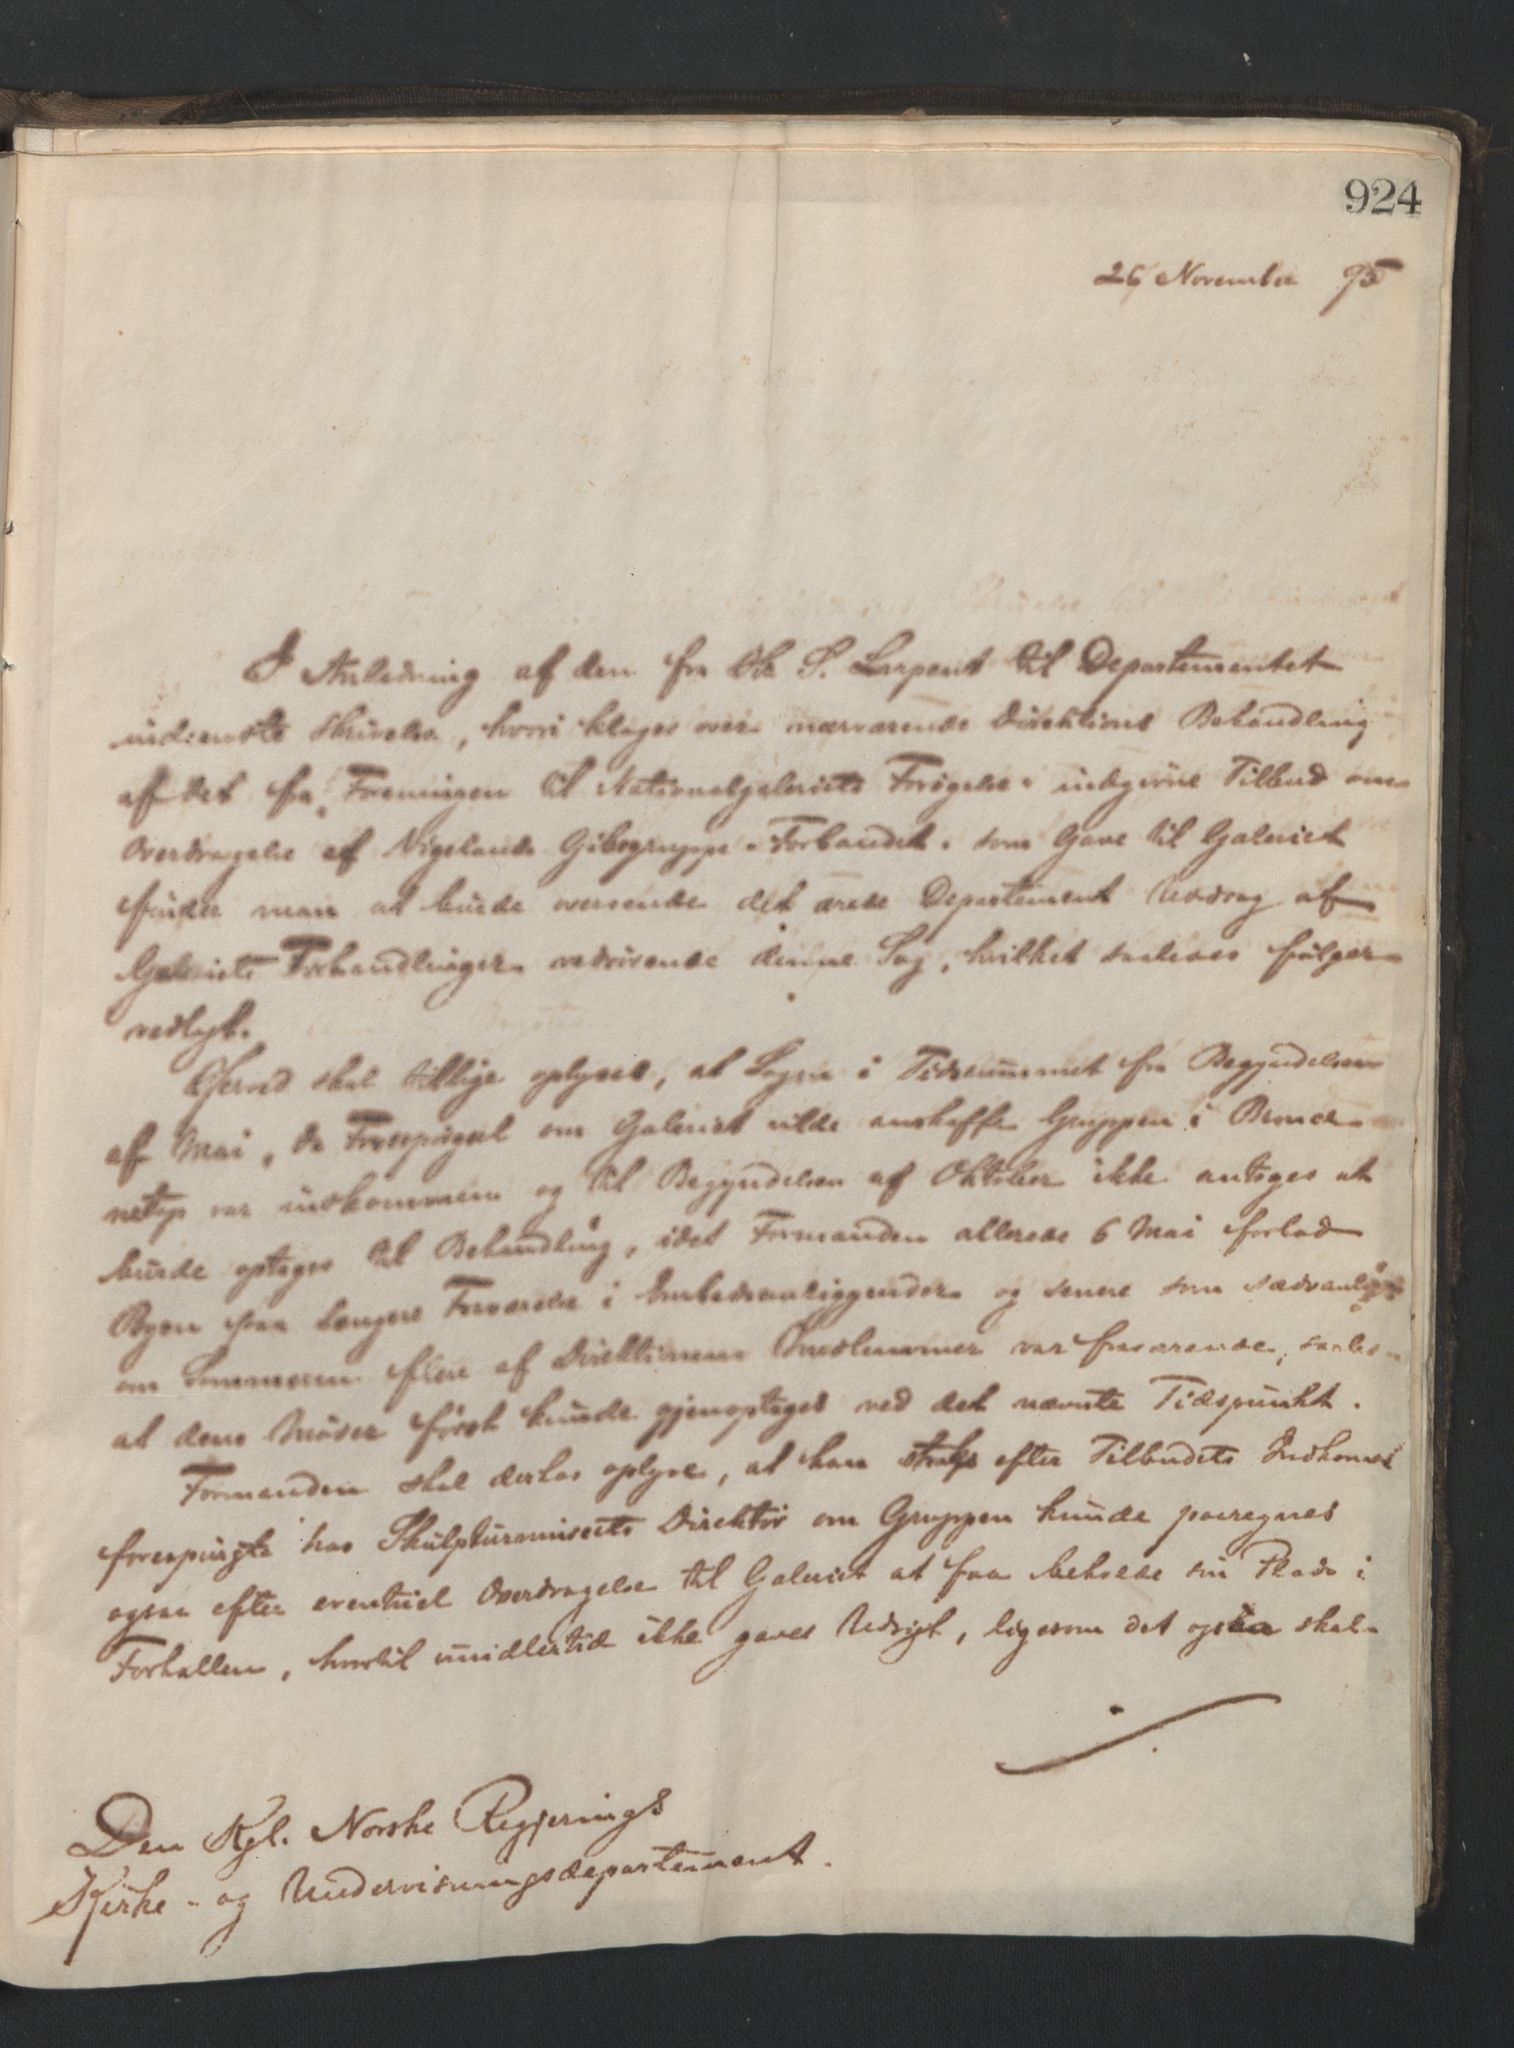 924
26 November 95
I Anledning af den fra Hr S. Larpent til Departementet
indsendte Skrivelse, hvori klages over nærværende Direktions Behandling
af det fra "Foreningen til Nationalgaleriets Forøgelse" indgivne Tilbud om
Overdragelse af Vigelands Gibsgruppe "Forbandet" som Gave til Galeriet
finder man at burde oversende det ærede Departement Uddrag af
Galeriets Forhandlinger vedrørende denne Sag, hvilket saaledes følger
vedlagt.
Herved skal tillige oplyses, at Sagen i Tidsrummet fra Begyndelsen
af Mai, da Forespørgsel om Galeriet vilde anskaffe Gruppen i Bronce
netop var indkommen og til Begyndelsen af Oktober ikke antoges at
burde optages til Behandling, idet Formanden allerede 6 Mai forlod
Byen paa længere Fraværelse i Embedsanliggender og senere som sædvanligt
om Sommeren flere af Direktionens Medlemmer var fraværende, saaledes
at dens Møder først kunde gjenoptages ved det nævnte Tidspunkt.
Formanden skal derhos oplyse, at han straks efter Tilbudets Indkomst
forespurgte hos Skulpturmuseets Direktør om Gruppen kunde paaregnes
ogsaa efter eventuel Overdragelse til Galeriet at faa beholde sin Plads i
Forhallen, hvortil imidlertid ikke gaves Udsigt, ligesom det ogsaa skal
Den Kgl. Norske Regjerings
Kirke- og Undervisningsdepartement.